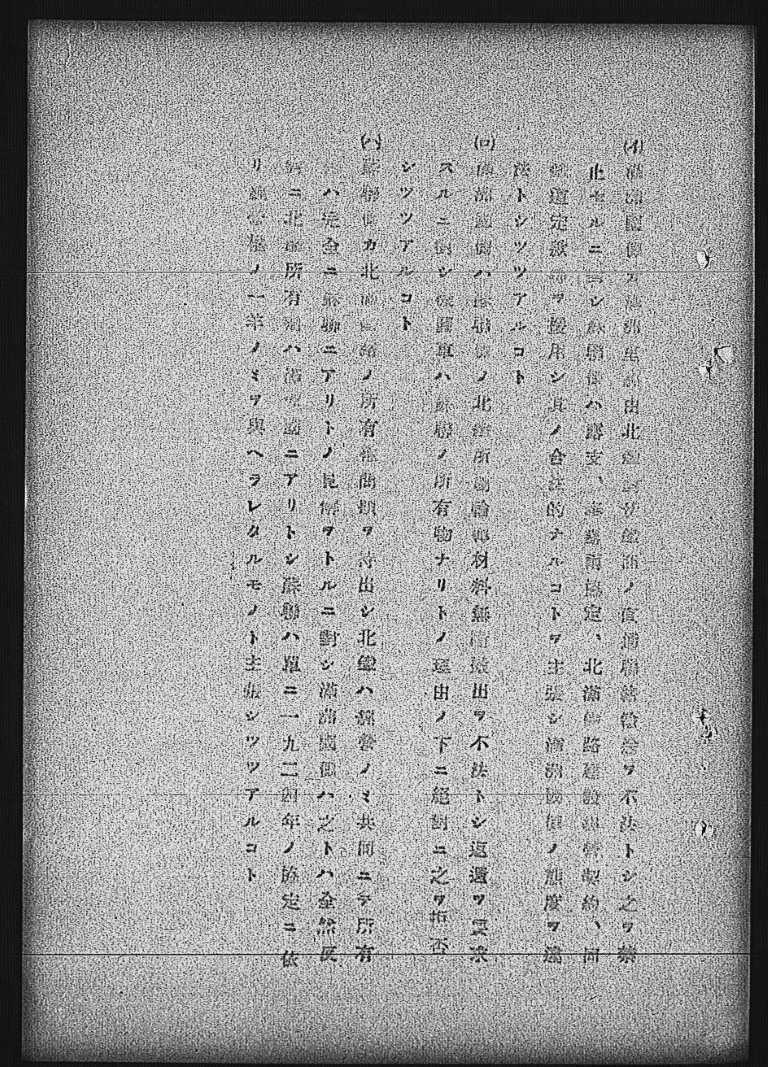 (イ)滿洲國側カ滿洲里經由北鐵ノ直通聯絡ヲ不法トシ之ヲ禁
止セルニ對シ蘇聯側ハ露支、奉露兩協定、北滿鐵路建設經營契約、同
鐵道定款等ヲ援用シ其ノ合法的ナルコトヲ主張シ滿洲國側ノ態度ヲ違
法トシツツアルコト
(ロ)滿洲國側ハ蘇聯側ノ北鐵所屬輪轉材料無斷搬出ヲ不法トシ返還ヲ要求
スルニ對シ機關車ハ蘇聯ノ所有物ナリトノ理由ノ下ニ絕對ニ之ヲ拒否
シツツアルコト
(ハ)蘇聯側カ北滿鐵路ノ所有權問題ヲ持出シ北鐵ハ經營ノミ共同ニテ所有
權ハ完全ニ蘇聯ニアリトノ見解ヲトルニ對シ滿洲國側ハ之トハ全然反
對ニ北鐵所有權ハ滿洲國ニアリトシ蘇聯ハ單ニ一九二四年ノ協定ニ依
リ經營權ノ一半ノミヲ與ヘラレタルモノト主張シツツアルコト